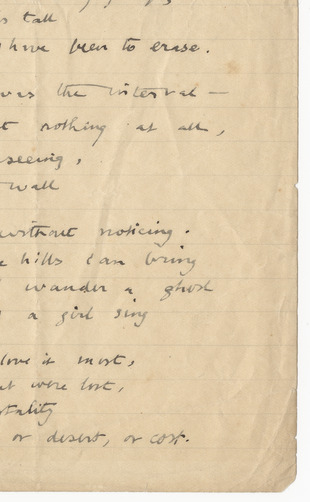 tall
have been to erase.
was the interval —
nothing at all,
seeing,
wall
without noticing.
hills I can bring
wander a ghost
a girl sing
love it most,
were lost,
or desert, or cost.